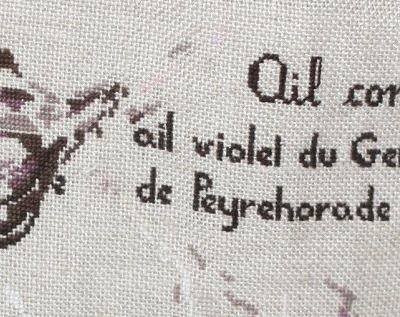 Ail com
ail violet du Ger
de Peyrehorade